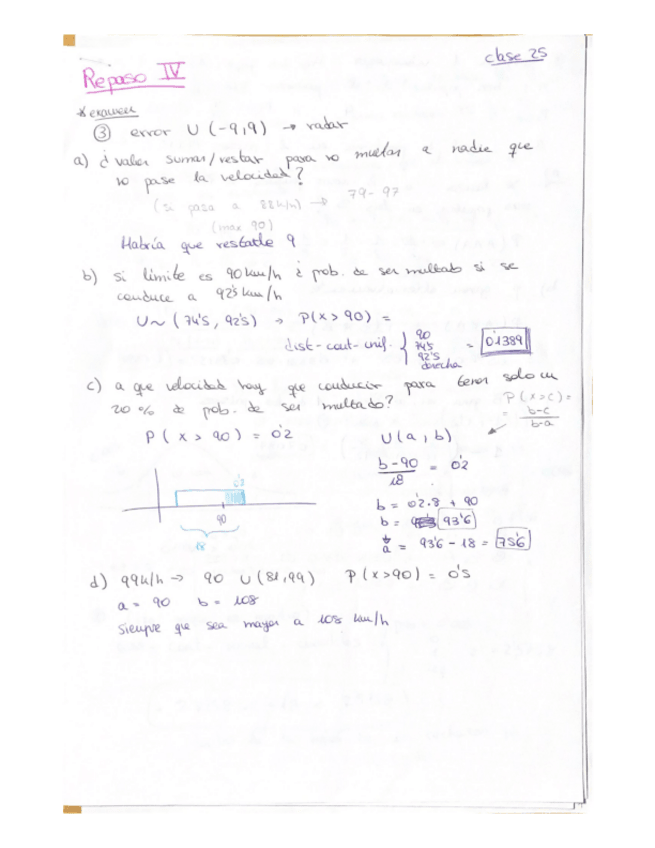 clase 25
Repaso IV
* examen
③ error U (-9,9) → radar
a) ¿ valor sumar/restar para no multar a nadie que
no pase la velocidad?
(si pasa a 88 k/h) → 79-97
(max 90)
Habría que restarle 9
b) si límite es 90 km/h ¿ prob. de ser multado si se
conduce a 92's km/h
U ~ (74's, 92's) → P(x > 90) =
dist-cont-unif. { 90
74's
92's
derecha
= 0'1389
c) a que velocidad hay que conducir para tener solo un
20 % de prob. de ser multado?
P (x>c) =
= b-c
b-a
P ( x > 90) = 0'2
U(a, b)
b-90
18
= 0'2
b = 0'2.8 + 90
b = 93'6
a = 93'6 - 18 = 75'6
0's
90
18
d) 99k/h → 90 U (81,99) P(x>90) = 0's
a = 90 b = 108
siempre que sea mayor a 108 km/h